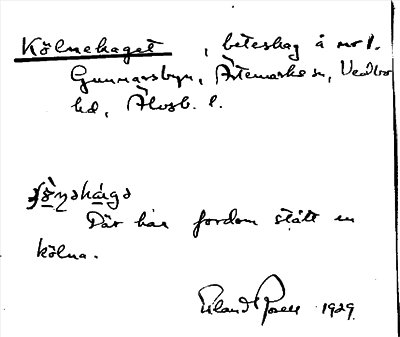 Kölnehaget, beteshag å nr 1.
Gunnarsbyn, Ärtemarks sn, Vedbo
hd, Älvsb. l.
Där har fordom stått en
kölna.
Erland Rosell 1929